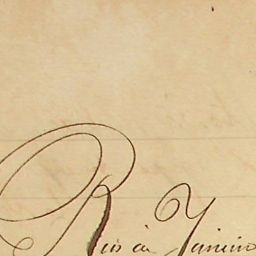 Rio de Janeiro